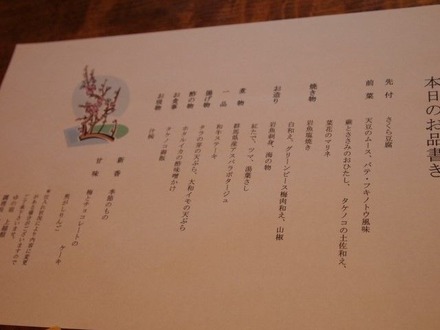 本日のお品書き
先付　さくら豆腐
前菜　天豆のムース、パテ・フキノトウ風味
蕨とささみのおひたし、タケノコの土佐和え、
菜花のマリネ
焼き物　岩魚塩焼き
白和え、グリーンピース梅肉和え、山椒
お造り　岩魚刺身、海の物
紅たで、ツマ、湯葉さし
煮物　群馬県産アスパラポタージュ
一品　和牛ステーキ
揚げ物　タラの芽の天ぷら、大和イモの天ぷら
酢の物　ホタルイカの酢味噌かけ
お食事　タケノコ御飯
お椀物
新香　季節のもの
甘味　チョコレートの
ケーキ